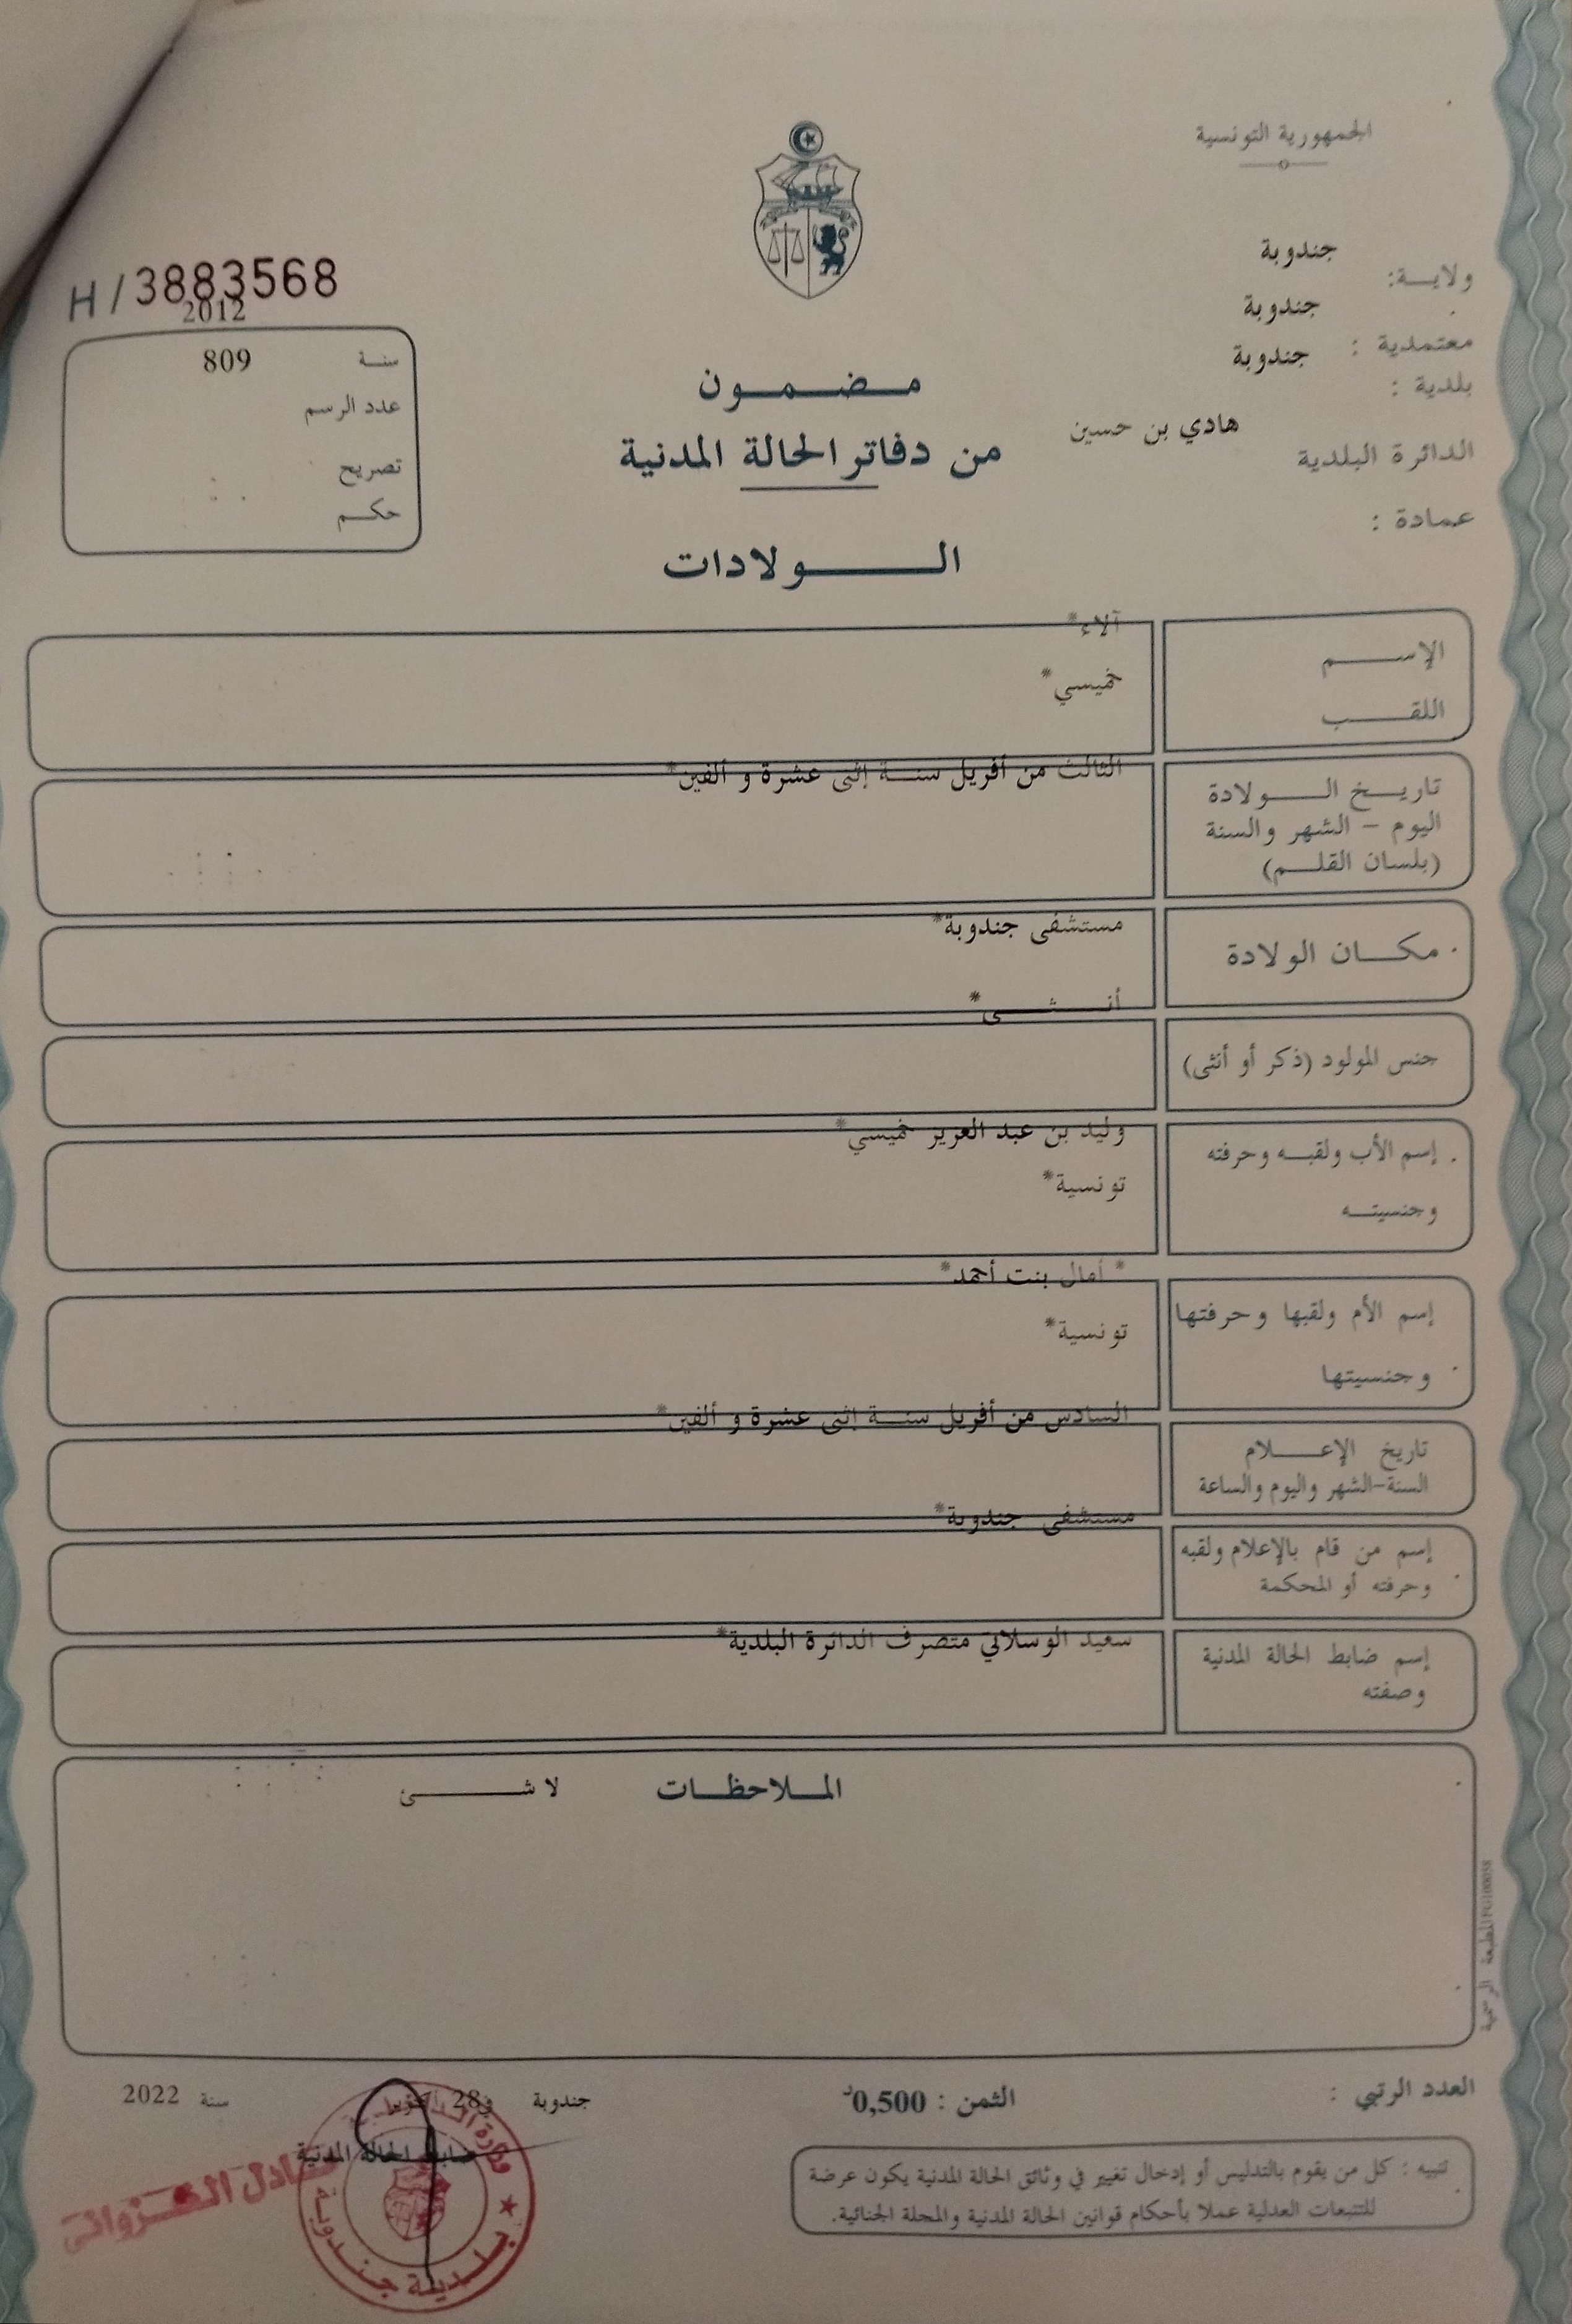 الجمهورية التونسية
H/3883568
ولايــة: جندوبة
معتمدية : جندوبة
بلدية : جندوبة
الدائرة البلدية هادي بن حسين
عمادة :
2012
سنـة 809
عدد الرسم
تصريح
حكـم
مـضـمـون
من دفاتر الحالة المدنية
الـولادات
الإسـم آلاء*
اللقـب خميسي*
تاريـخ الـولادة
اليوم – الشهر والسنة
(بلسان القلـم)
الثالث من أفريل سنـة إثنى عشرة و ألفين*
مكـان الولادة
مستشفى جندوبة*
أنـثـى*
جنس المولود (ذكر أو أنثى)
إسم الأب ولقبـه وحرفته
وجنسيتـه
وليد بن عبد العزيز خميسي*
تونسية*
إسم الأم ولقبها وحرفتها
وجنسيتها
* أمال بنت أحمد*
تونسية*
تاريخ الإعـلام
السنة-الشهر واليوم والساعة
السادس من أفريل سنـة إثنى عشرة و ألفين*
إسم من قام بالإعلام ولقبه
وحرفته أو المحكمة
مستشفى جندوبة*
إسم ضابط الحالة المدنية
وصفته
سعيد الوسلاتي متصرف الدائرة البلدية*
الملاحظـات لا شـئ
المطبعة الرسمية
العدد الرتبي :
الثمن : 0,500د
جندوبة في 28 سنة 2022
ضابط الحالة المدنية
بلدية جندوبة
تنبيه : كل من يقوم بالتدليس أو إدخال تغيير في وثائق الحالة المدنية يكون عرضة
للتتبعات العدلية عملا بأحكام قوانين الحالة المدنية والمجلة الجنائية.